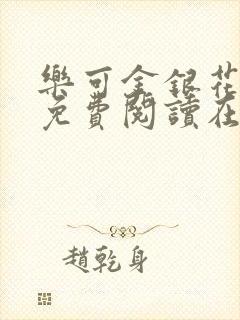 樂可金銀花
免費閱讀在
趙乾身